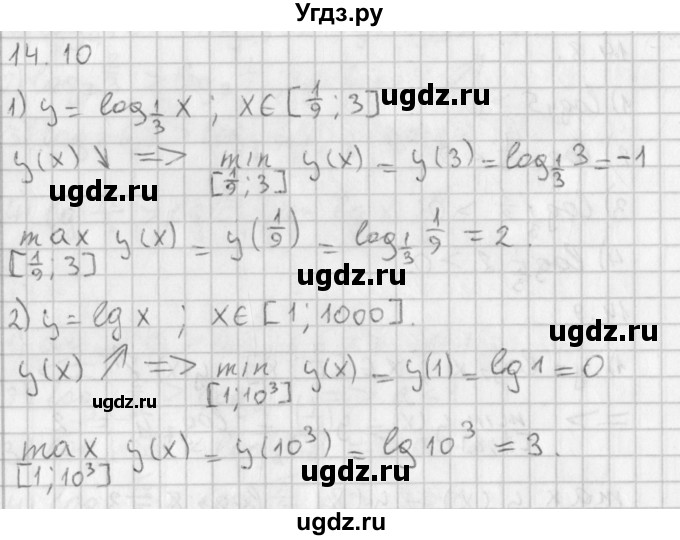 Угдз.ру
14.10
1) y = log_{1/3} x ; x∈[1/9 ; 3]
ugdz.ru
y(x) ↓ => min_{[1/9 ; 3]} y(x) = y(3) = log_{1/3} 3 = -1
ugdz.ru ugdz.ru
max_{[1/9 ; 3]} y(x) = y(1/9) = log_{1/3} 1/9 = 2.
ugdz.ru ugdz.ru
2) y = lg x ; x∈[1; 1000].
ugdz.ru
y(x) ↗ => min_{[1;10³]} y(x) = y(1) = lg 1 = 0
ugdz.ru ugdz.ru
max_{[1;10³]} y(x) = y(10³) = lg 10³ = 3.
ugdz.ru ugdz.ru
ugdz.ru